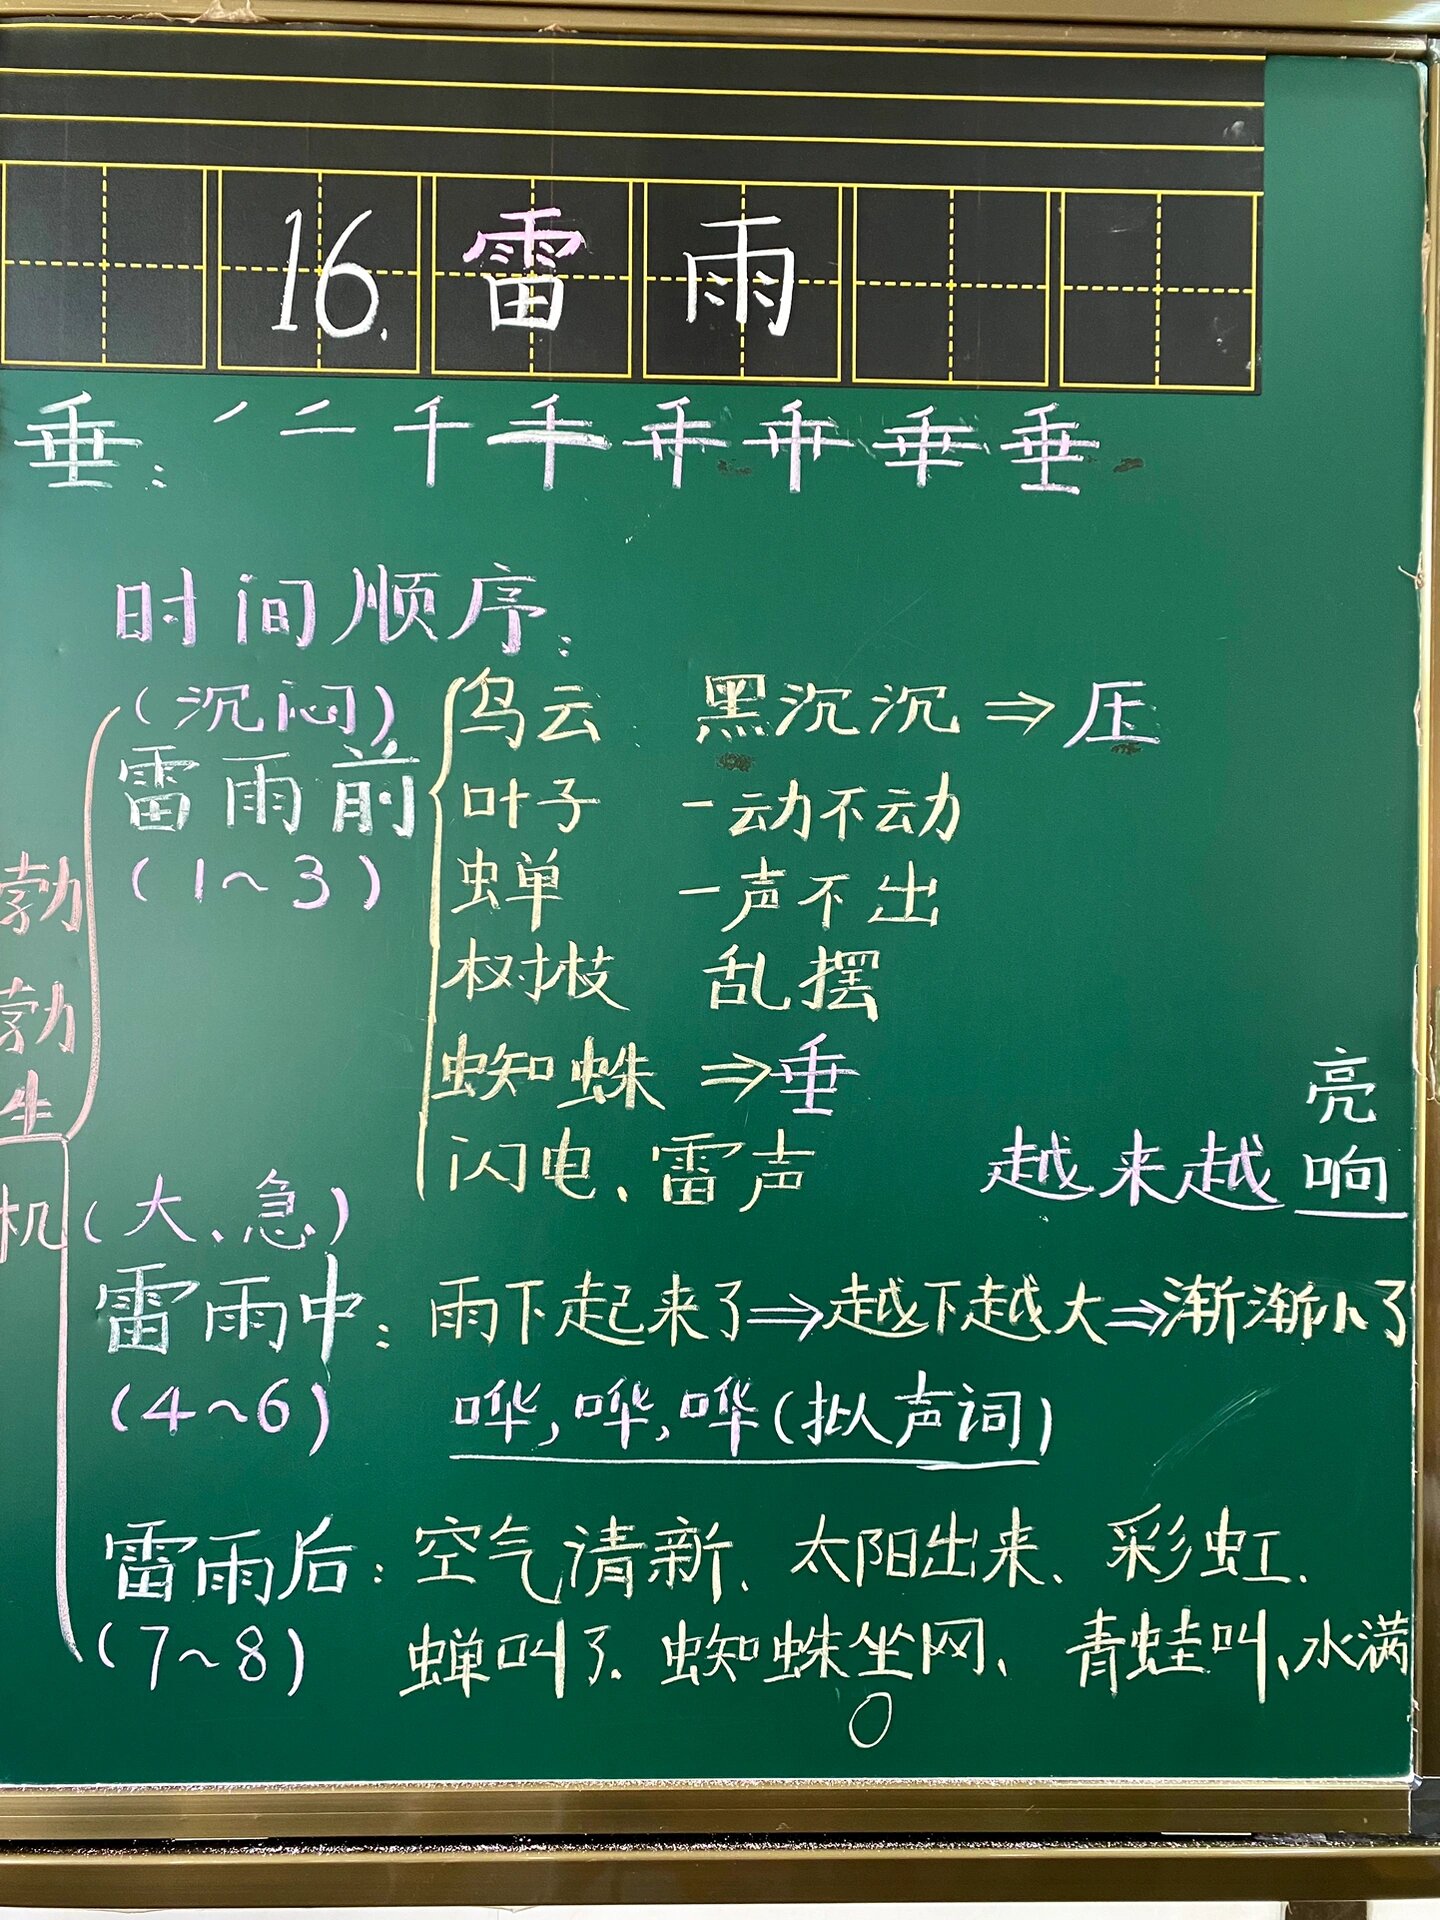 16. 雷雨
垂:
时间顺序:
(沉闷)
雷雨前
(1～3)
乌云 黑沉沉⇒压
叶子 一动不动
蝉 一声不出
树枝 乱摆
蜘蛛⇒垂
闪电、雷声 越来越 亮
响
勃勃生机
(大、急)
雷雨中: 雨下起来了⇒越下越大⇒渐渐小了
(4～6) 哗,哗,哗(拟声词)
雷雨后: 空气清新、太阳出来、彩虹、
(7～8) 蝉叫了、蜘蛛坐网、青蛙叫、水满